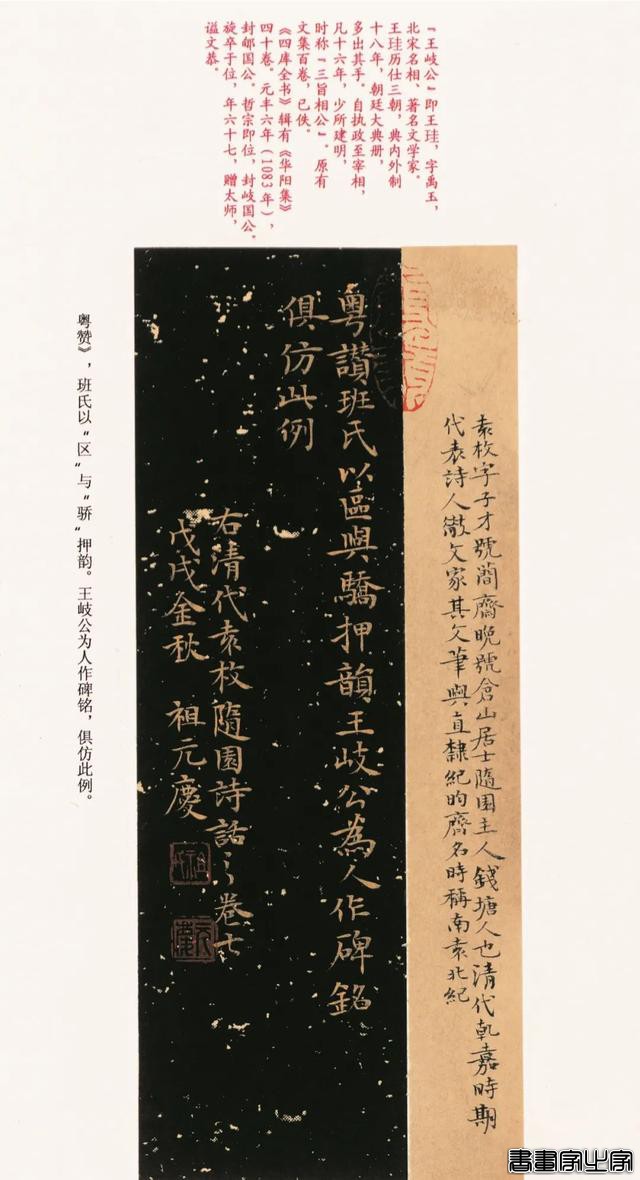 “王岐公”即王珪，字禹玉，
北宋名相、著名文学家。
王珪历仕三朝，典内外制
十八年，朝廷大典册，
多出其手。自执政至宰相，
凡十六年，少所建明，
时称“三旨相公”。原有
文集百卷，已佚。
《四库全书》辑有《华阳集》
四十卷。元丰六年（1083年），
封郇国公。哲宗即位，封岐国公。
旋卒于位，年六十七，赠太师，
谥文恭。
袁枚字子才號簡齋晚號倉山居士隨園主人錢塘人也清代乾嘉時期
代表詩人散文家其文筆與直隸紀昀齊名時稱南袁北紀
粵讚班氏以區與驕押韻王岐公為人作碑銘
俱仿此例
右清代袁枚隨園詩話之卷
戊戌金秋 祖元慶
粤赞》，班氏以“区”与“骄”押韵。王岐公为人作碑铭，俱仿此例。
書畫家必家